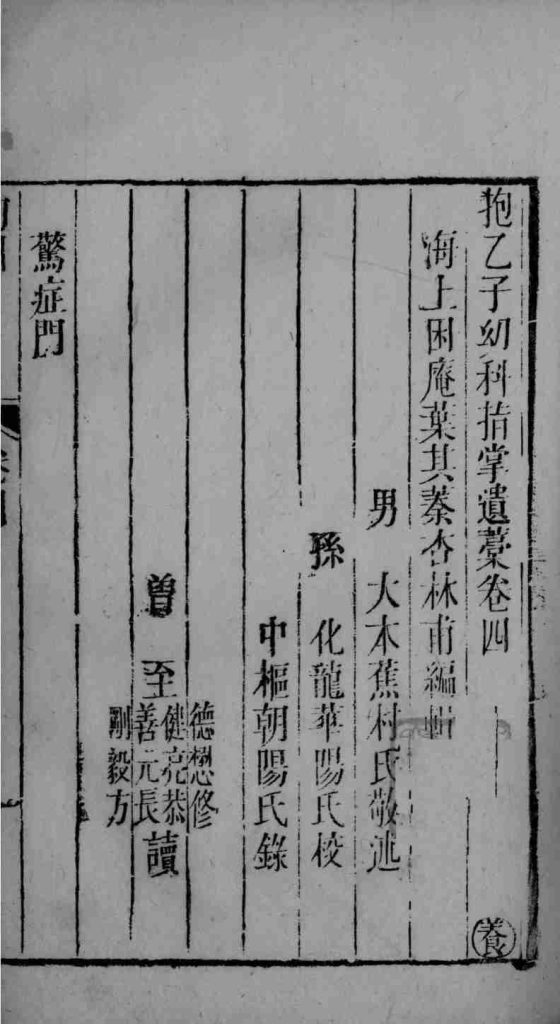 抱乙子幼科指掌遺藁卷四
海上困庵葉其蓁杏林甫編輯
男 大本蕉村氏敬述
孫 化龍華陽氏校
中樞朝陽氏錄
曾 至
德懋修
健亮恭
善元長
剛毅方
讀
驚症門
養